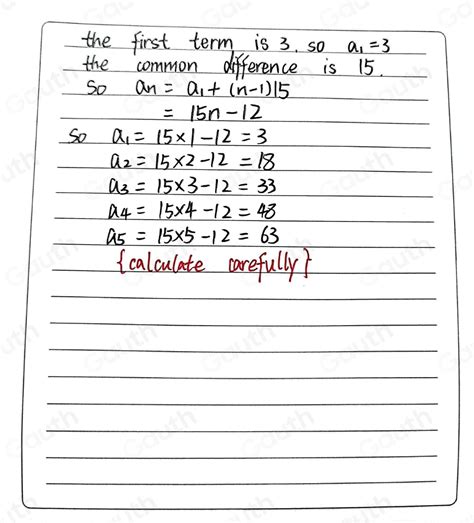 the first term is 3. so a₁=3
the common difference is 15.
So an = a₁+(n-1)15
= 15n-12
So a₁ = 15×1-12 = 3
a₂ = 15×2-12 = 18
a₃ = 15×3-12 = 33
a₄ = 15×4-12 = 48
a₅ = 15×5-12 = 63
{calculate carefully}
Gauth